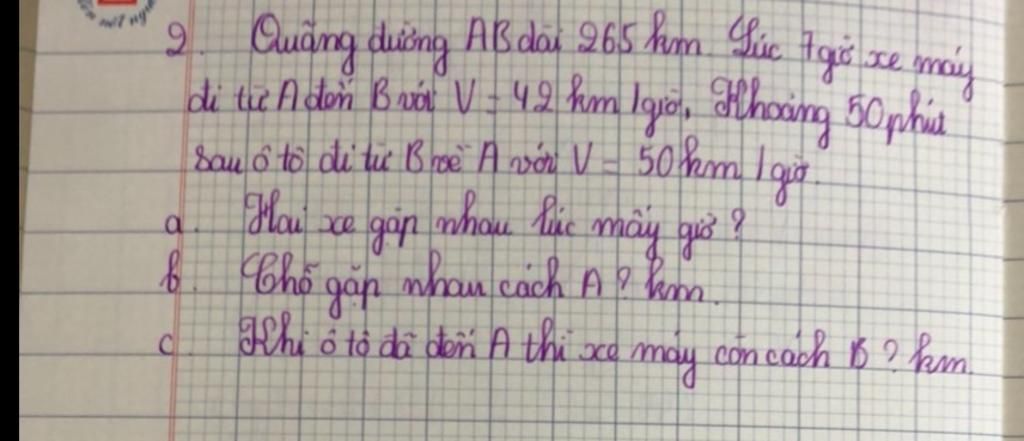 2. Quãng đường AB dài 265 km Lúc 7 giờ xe máy
đi từ A đến B với V = 42 km/giờ. Khoảng 50 phút
sau ô tô đi từ B về A với V = 50 km/giờ.
a. Hai xe gặp nhau lúc mấy giờ?
b. Chỗ gặp nhau cách A? km.
c. Khi ô tô đã đến A thì xe máy còn cách B? km